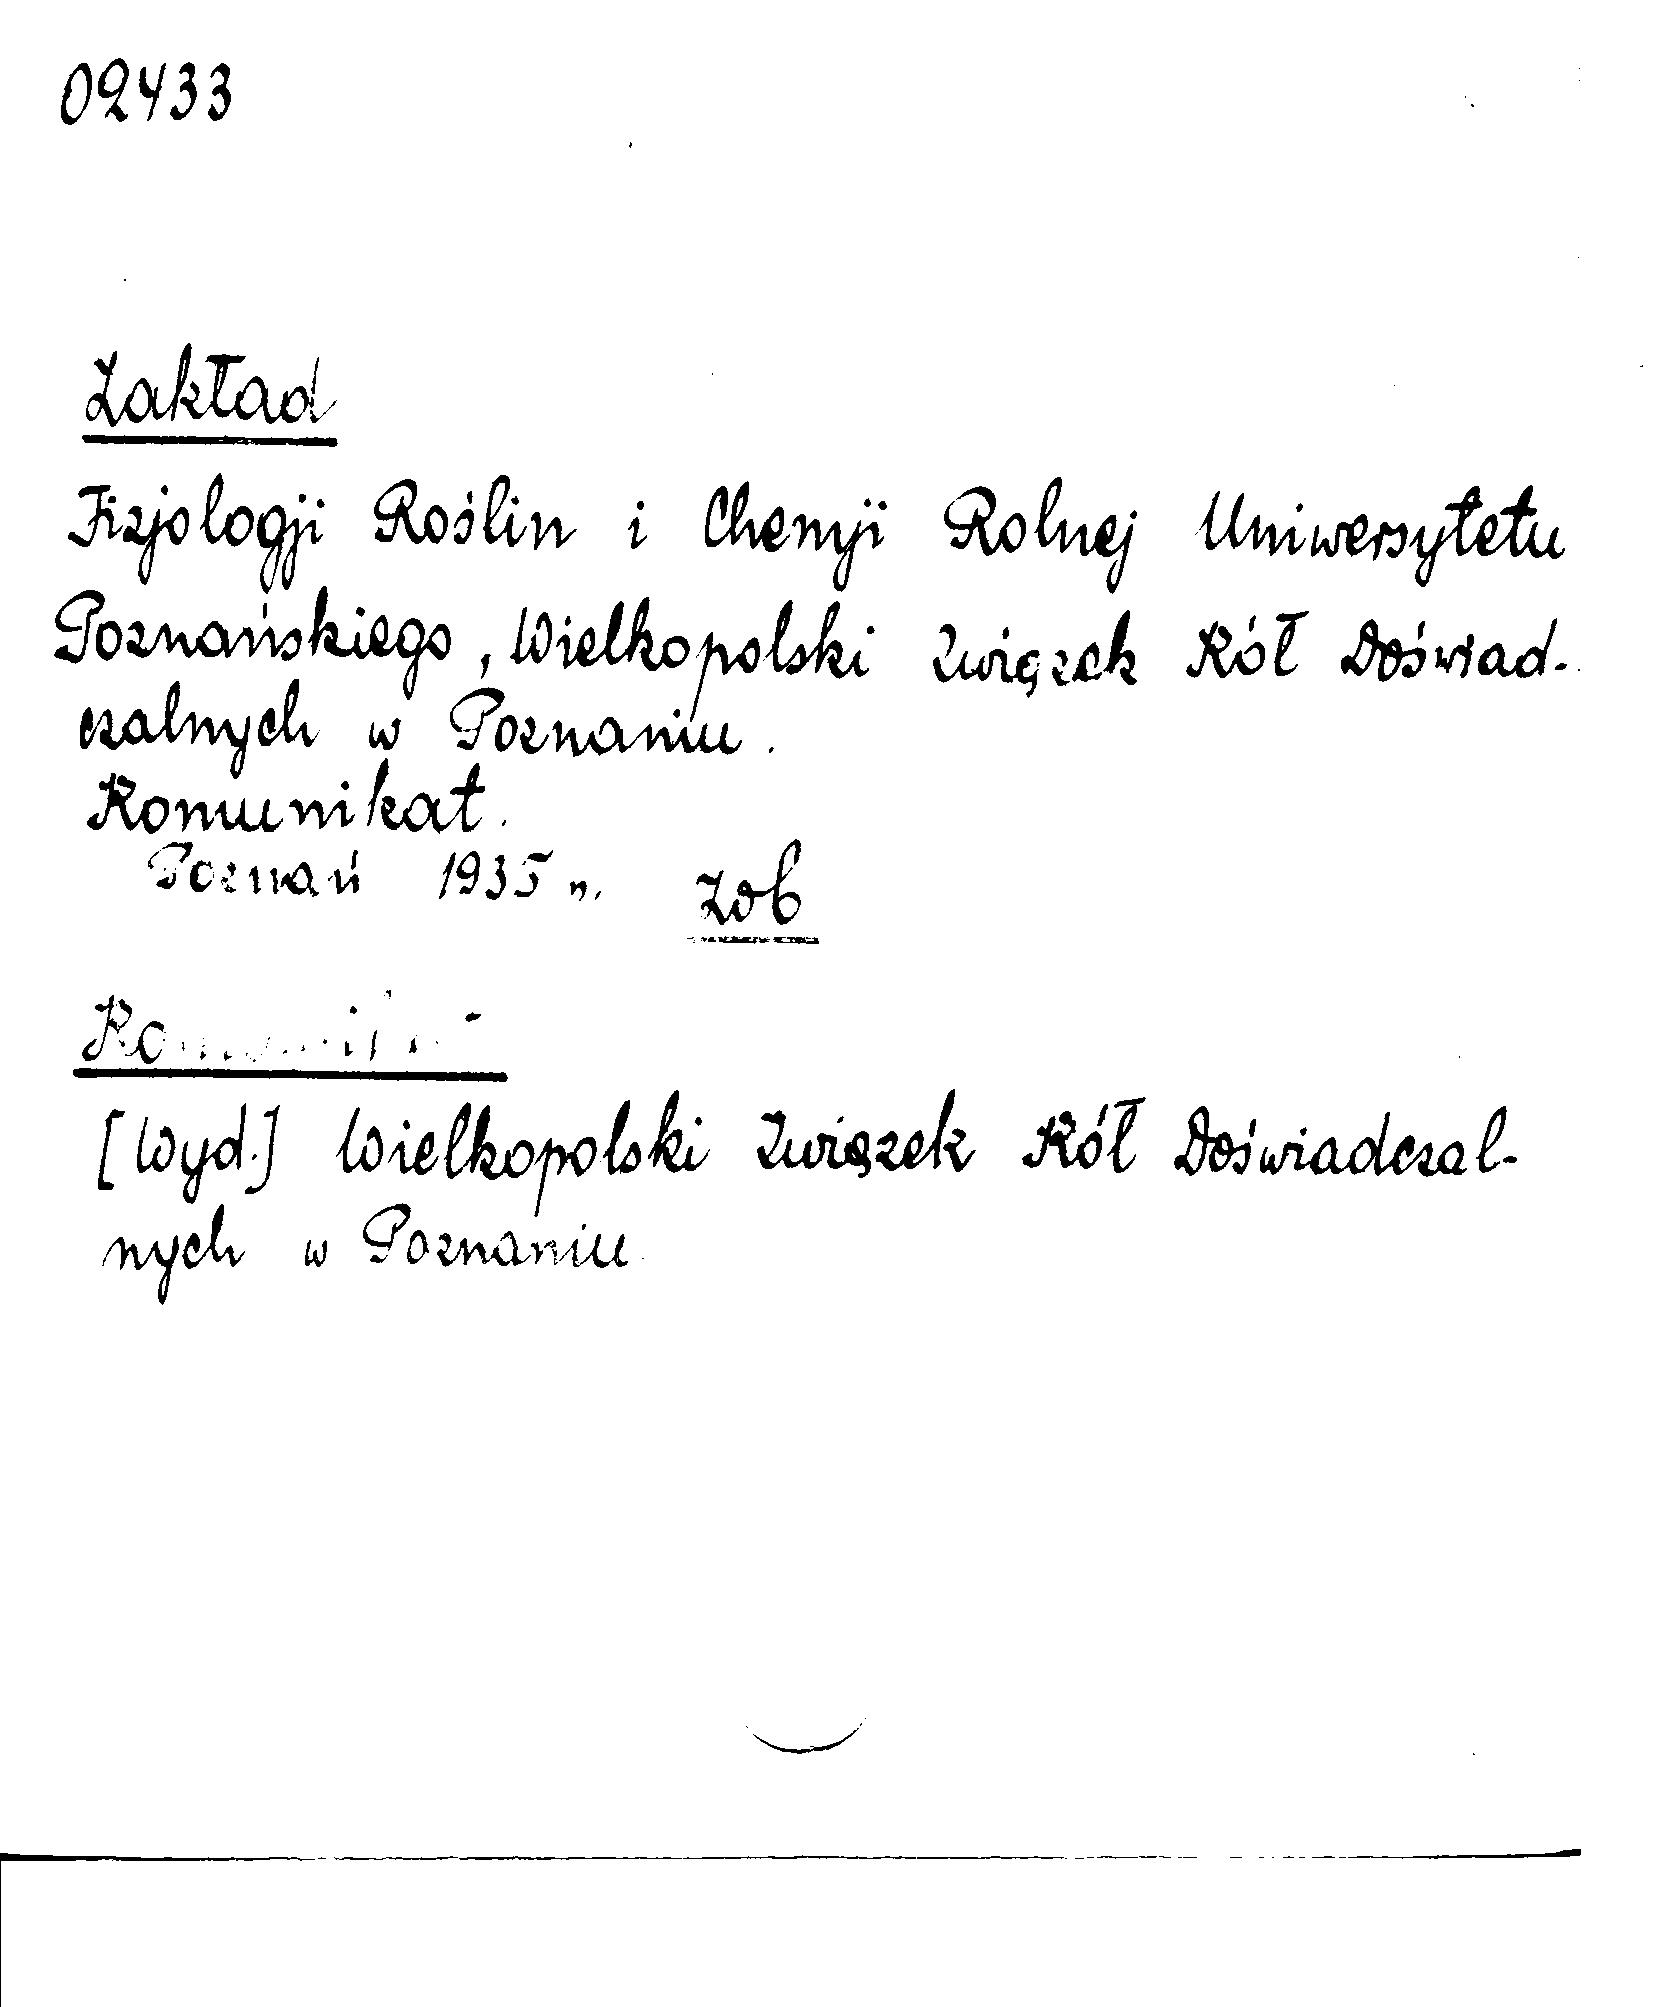 02433
Zakład
Fizjologji Roślin i Chemji Rolnej Uniwersytetu
Poznańskiego, Wielkopolski Związek Kół Doświad-
czalnych w Poznaniu.
Komunikat.
Poznań 1935 r.
Zob
[Wyd.] Wielkopolski Związek Kół Doświadczal-
nych w Poznaniu